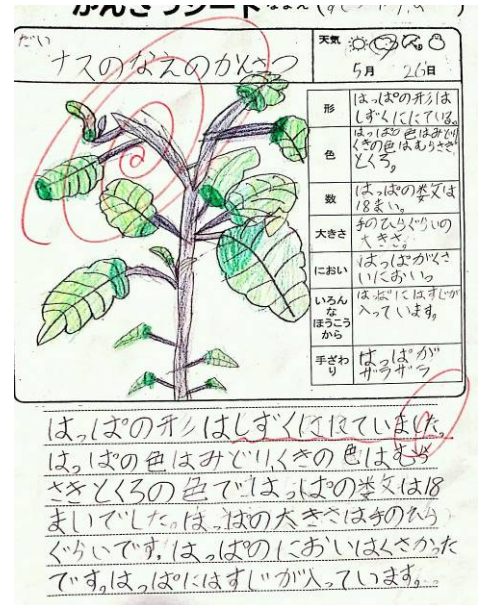 かんさつシート
だい
ナスのなえのかんさつ
天気
5月 26日
形
はっぱの形は
しずくににている。
色
はっぱの色はみどり
くきの色はむらさき
とくろ。
数
はっぱの数は
18まい。
大きさ
手のひらぐらいの
大きさ。
におい
はっぱがくさ
いにおい。
いろんな
ほうこう
から
はっぱにはすじが
入っています。
手ざわり
はっぱが
ザラザラ
はっぱの形はしずくににていました。
はっぱの色はみどり、くきの色はむら
さきとくろの色ではっぱの数は18
まいでした。はっぱの大きさは手のひら
ぐらいです。はっぱのにおいはくさかった
です。はっぱにはすじが入っています。